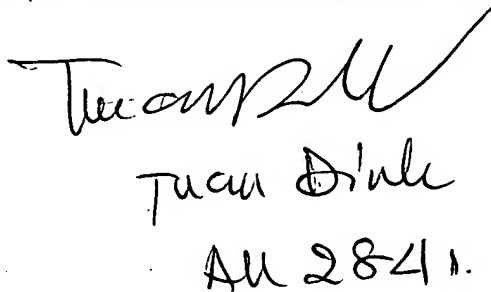 Tuan Dinh
AU 2841.